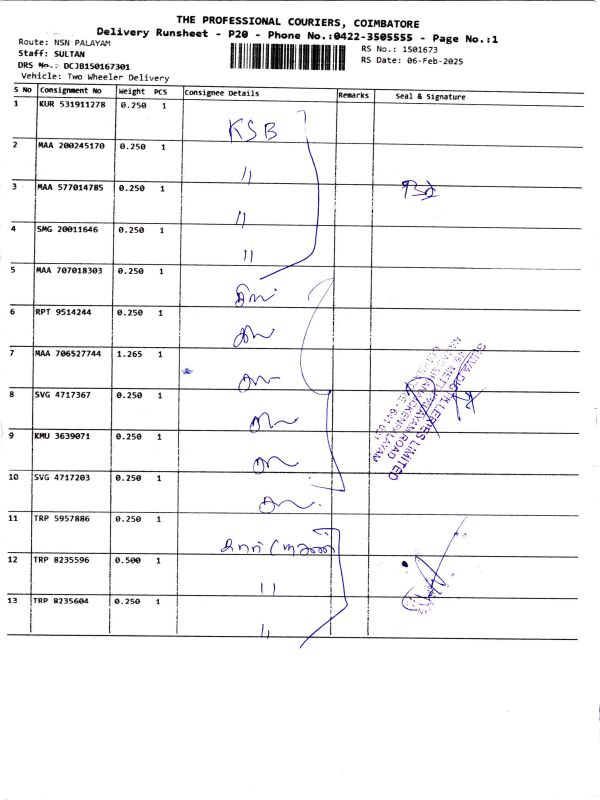 THE PROFESSIONAL COURIERS, COIMBATORE
Delivery Runsheet - P20 - Phone No.:0422-3505555 - Page No.:1
Route: NSN PALAYAM
Staff: SULTAN
DRS No.: DCJB150167301
Vehicle: Two Wheeler Delivery
RS No.: 1501673
RS Date: 06-Feb-2025
S No Consignment No Weight PCS Consignee Details Remarks Seal & Signature
1 KUR 531911278 0.250 1 KSB
2 MAA 200245170 0.250 1 "
3 MAA 577014785 0.250 1 "
4 SMG 20011646 0.250 1 "
5 MAA 707018303 0.250 1
6 RPT 9514244 0.250 1
7 MAA 706527744 1.265 1
8 SVG 4717367 0.250 1
9 KMU 3639071 0.250 1
10 SVG 4717203 0.250 1
11 TRP 5957886 0.250 1
12 TRP 8235596 0.500 1 "
13 TRP 8235604 0.250 1 "
LIMITED
ROAD